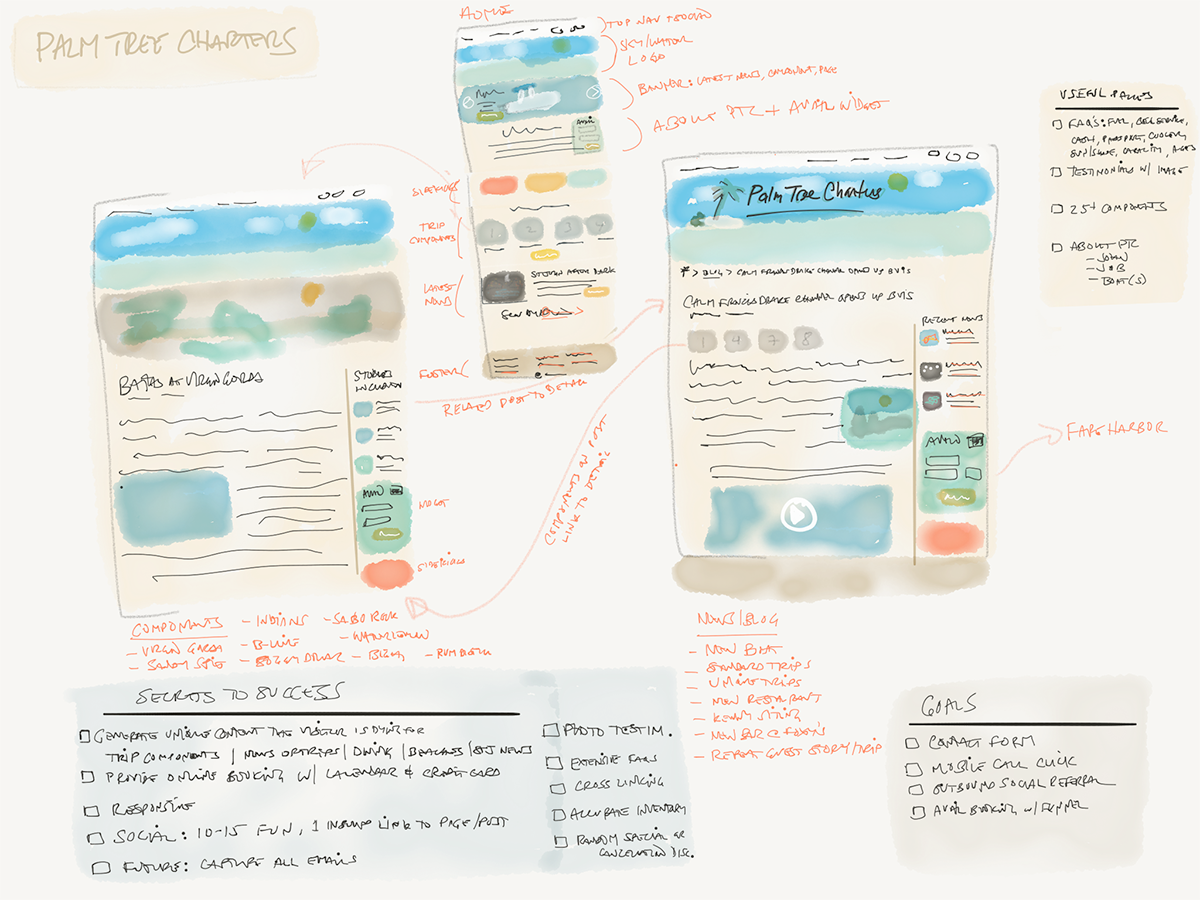 PALM TREE CHARTERS
HOME
TOP NAV + SOCIAL
SKY/WATER
LOGO
BANNER: LATEST NEWS, COMPONENT, PAGE
ABOUT PTC + AVAIL WIDGET
AVAIL
SIDEKICKS
TRIP
COMPONENTS
1 2 3 4
LATEST
NEWS
FOOTER
RELATED POST TO DETAIL
COMPONENTS ON POST
LINK TO DETAIL
BATHS AT VIRGIN GORDA
STORIES
INCLUDING
AVAIL
WIDGET
SIDEKICKS
Palm Tree Charters
* > BLOG > CALM FRANCIS DRAKE CHANNEL OPENS UP BVIS
CALM FRANCIS DRAKE CHANNEL OPENS UP BVIS
1 4 7 8
RECENT NEWS
AVAIL
FARE HARBOR
USEFUL PAGES
FAQ'S: FUEL, CELL SERVICE,
CASH, PASSPORT, CUSTOMS,
CAPACITY, AGES
TESTIMONIALS W/ IMAGE
25+ COMPONENTS
ABOUT PTC
- JOHN
- BOAT(S)
COMPONENTS
- VIRGIN GORDA
- SANDY SPIT
- INDIANS
- B-LINE
- SOGGY DOLLAR
- SABA ROCK
- WATERLEMON
- FOXY
NEWS/BLOG
- NEW BOAT
- STANDARD TRIPS
- UNIQUE TRIPS
- NEW RESTAURANT
- KENNY SITING
- NEW BAR @ FOXY'S
- REPEAT GUEST STORY/TRIP
SECRETS TO SUCCESS
GENERATE UNIQUE CONTENT THE VISITOR IS DYING FOR
TRIP COMPONENTS | NEWS OF TRIPS | DRINK | BEACHES | BVI NEWS
PROVIDE ONLINE BOOKING W/ CALENDAR & CREDIT CARD
RESPONSIVE
SOCIAL: 10-15 FUN, 1 INBOUND LINK TO PAGE/POST
FUTURE: CAPTURE ALL EMAILS
PHOTO TESTIM.
EXTENSIVE FAQS
CROSS LINKING
ACCURATE INVENTORY
RANDOM SPECIAL OR
CANCELLATION DISC.
GOALS
CONTACT FORM
MOBILE CALL CLICK
OUTBOUND SOCIAL REFERRAL
AVAIL BOOKING W/ FUNNEL